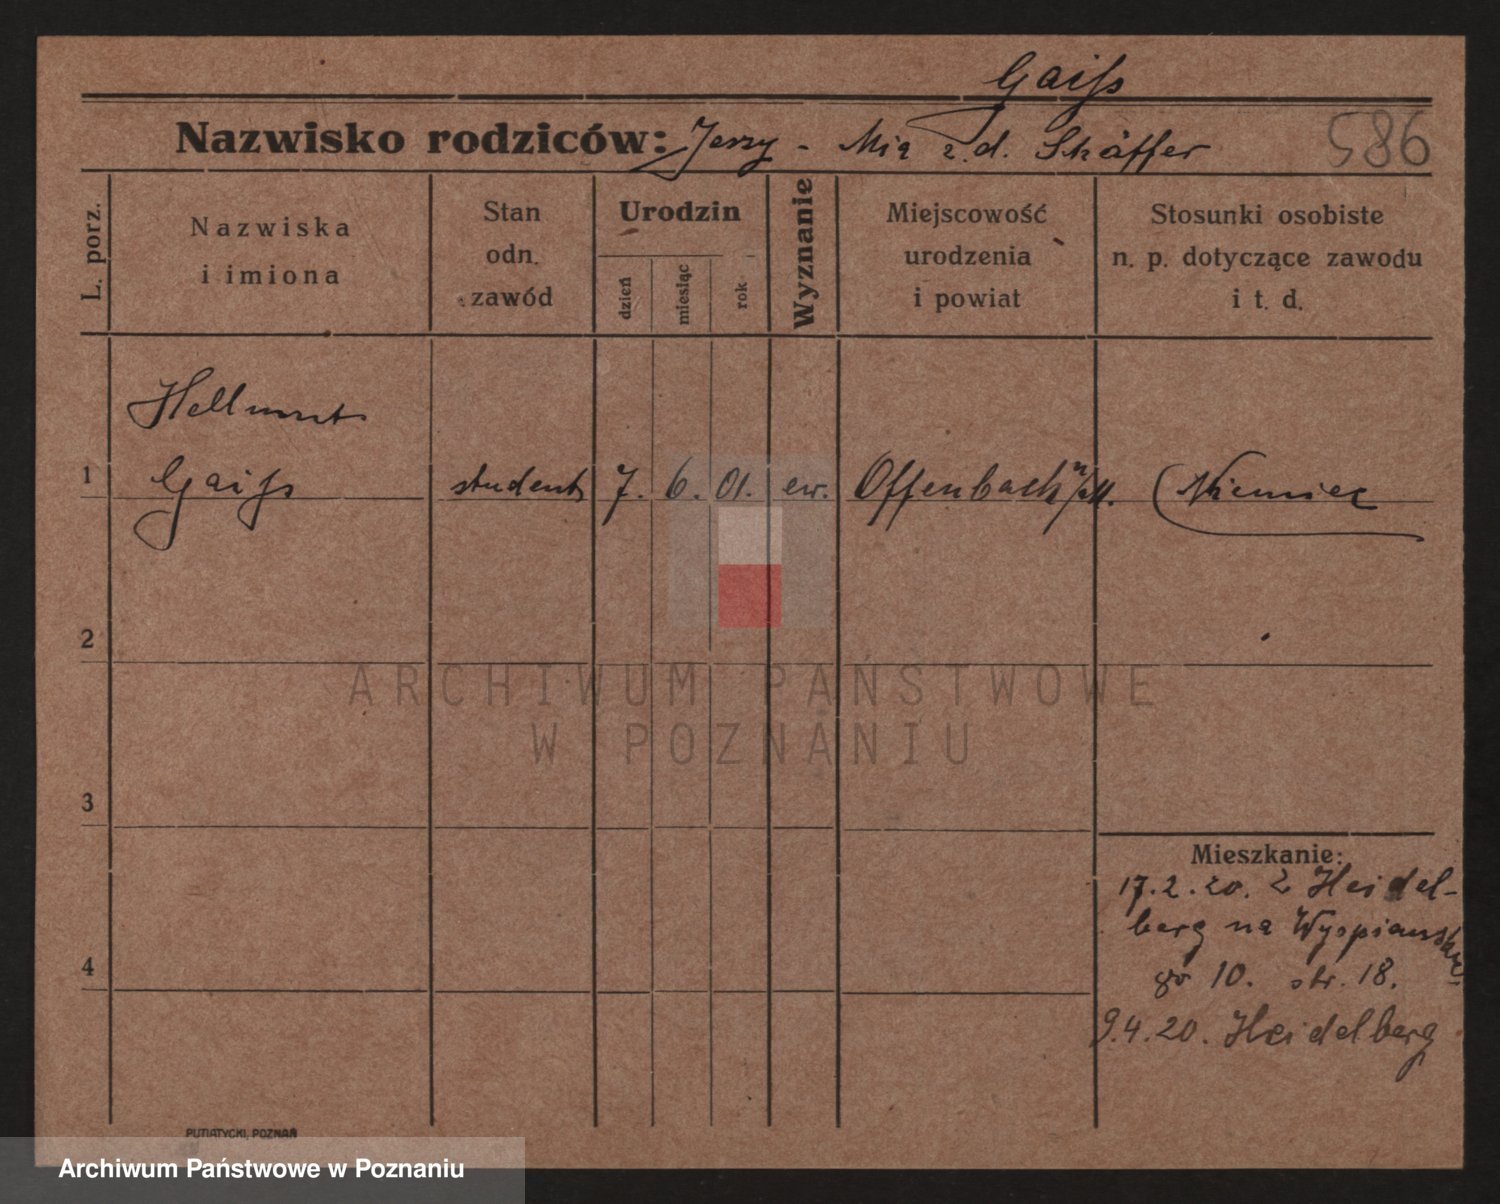 Gaiſs
Nazwisko rodziców: Jerzy - Mia z.d. Schäffer
586
L. porz.
Nazwiska
i imiona
Stan
odn.
zawód
Urodzin
dzień
miesiąc
rok
Wyznanie
Miejscowość
urodzenia
i powiat
Stosunki osobiste
n. p. dotyczące zawodu
i t. d.
Hellmut
1 Gaiſs student 7. 6. 01. ew. Offenbach n/M. Niemiec
2
ARCHIWUM PAŃSTWOWE
W POZNANIU
3
Mieszkanie:
17.2.20. z Heidel-
berg na Wyspiańskie-
4
go 10. str. 18.
9.4.20. Heidelberg
PUTIATYCKI, POZNAŃ
Archiwum Państwowe w Poznaniu